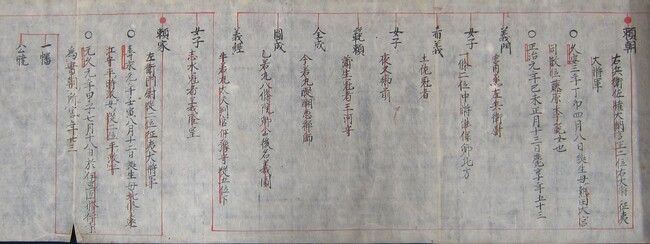 頼朝
右兵衛佐 権大納言 正二位 右大将 征夷
大将軍
久安三年丁卯四月八日誕生母熱田大宮
司散位藤原季範女也
正治元年己未正月十三日薨享年五十三
義門
宮内丞左兵衛尉
女子
一條二位中将能保卿北方
希義
土佐冠者
女子
夜叉御前
範頼
蒲生冠者三河守
全成
今若丸醍醐悪禅師
圓成
乙若丸八條宮卿公後名義圓
義経
牛若丸九郎大夫判官伊豫守従五位下
女子
志水冠者義高室
頼家
左衛門督従二位征夷大将軍
寿永元年壬寅八月十二日誕生母北條遠
江守平時政女従二位平政子
元久元年甲子七月十八日於伊豆国修禅寺
為害御所害年廿三
一幡
公暁